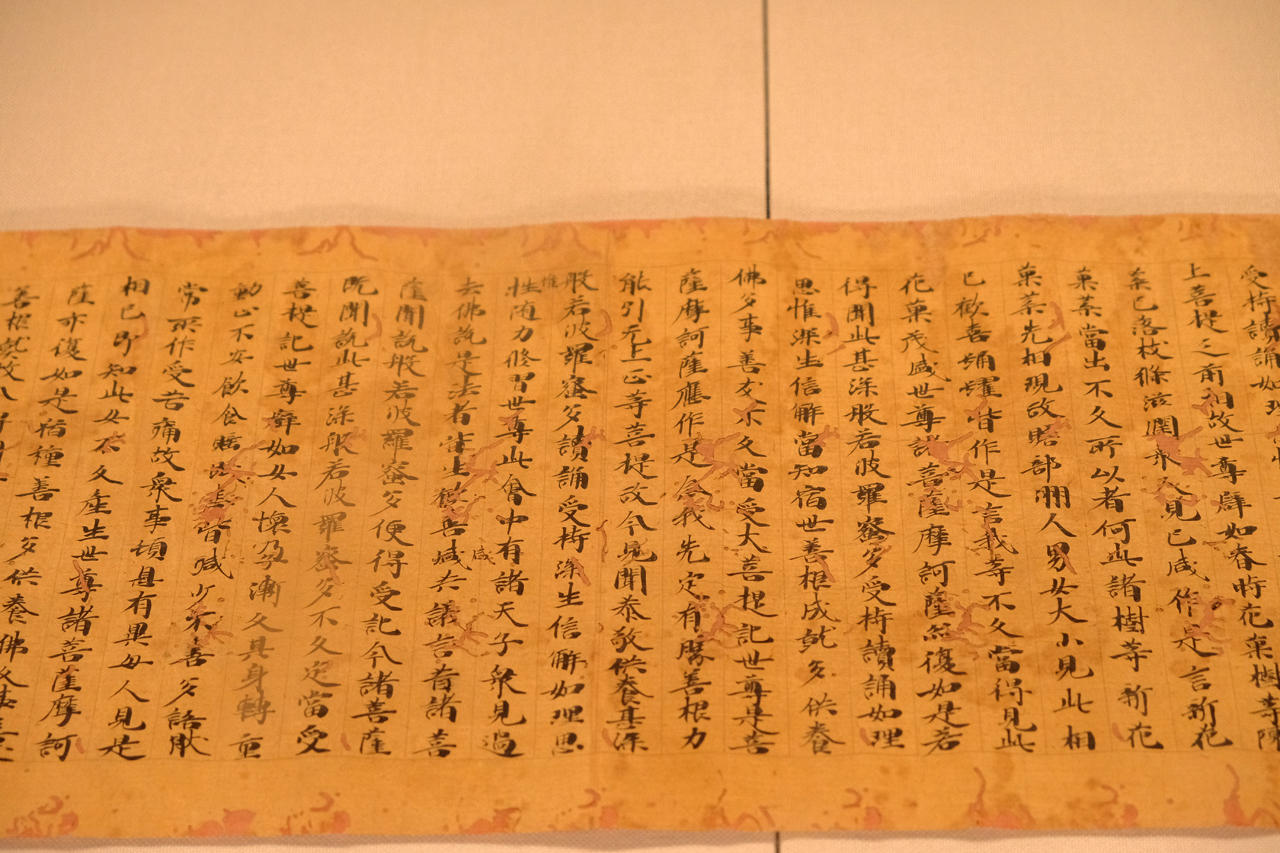 受持讀誦如
上菩提之前相故世尊譬如春時花菓樹等陳
葉已落枝條滋潤衆人見已咸作是言新花
菓葉當出不久所以者何此諸樹等新花
菓葉先相現故贍部洲人男女大小見此相
已歡喜踊躍皆作是言我等不久當得見此
花菓茂盛世尊諸菩薩摩訶薩亦復如是若
得聞此甚深般若波羅蜜多受持讀誦如理
思惟深生信解當知宿世善根成就多供養
佛多事善友不久當受大菩提記世尊是菩
薩摩訶薩應作是念我先定有勝善根力
能引无上正等菩提故今見聞恭敬供養甚深
般若波羅蜜多讀誦受持深生信解如理思
惟随力修習世尊此會中有諸天子衆見過
去佛說是法者皆生歡喜咸共議言昔諸菩
薩聞說般若波羅蜜多便得受記今諸菩薩
既聞說此甚深般若波羅蜜多不久定當受
菩提記世尊譬如女人懷孕漸久其身轉重
動止不安飲食睡眠悉皆減少不憙多語猒
常所作受苦痛故衆事頓息有異母人見是
相已即知此女不久產生世尊諸菩薩摩訶
薩亦復如是宿種善根多供養佛久事善
善根熟故